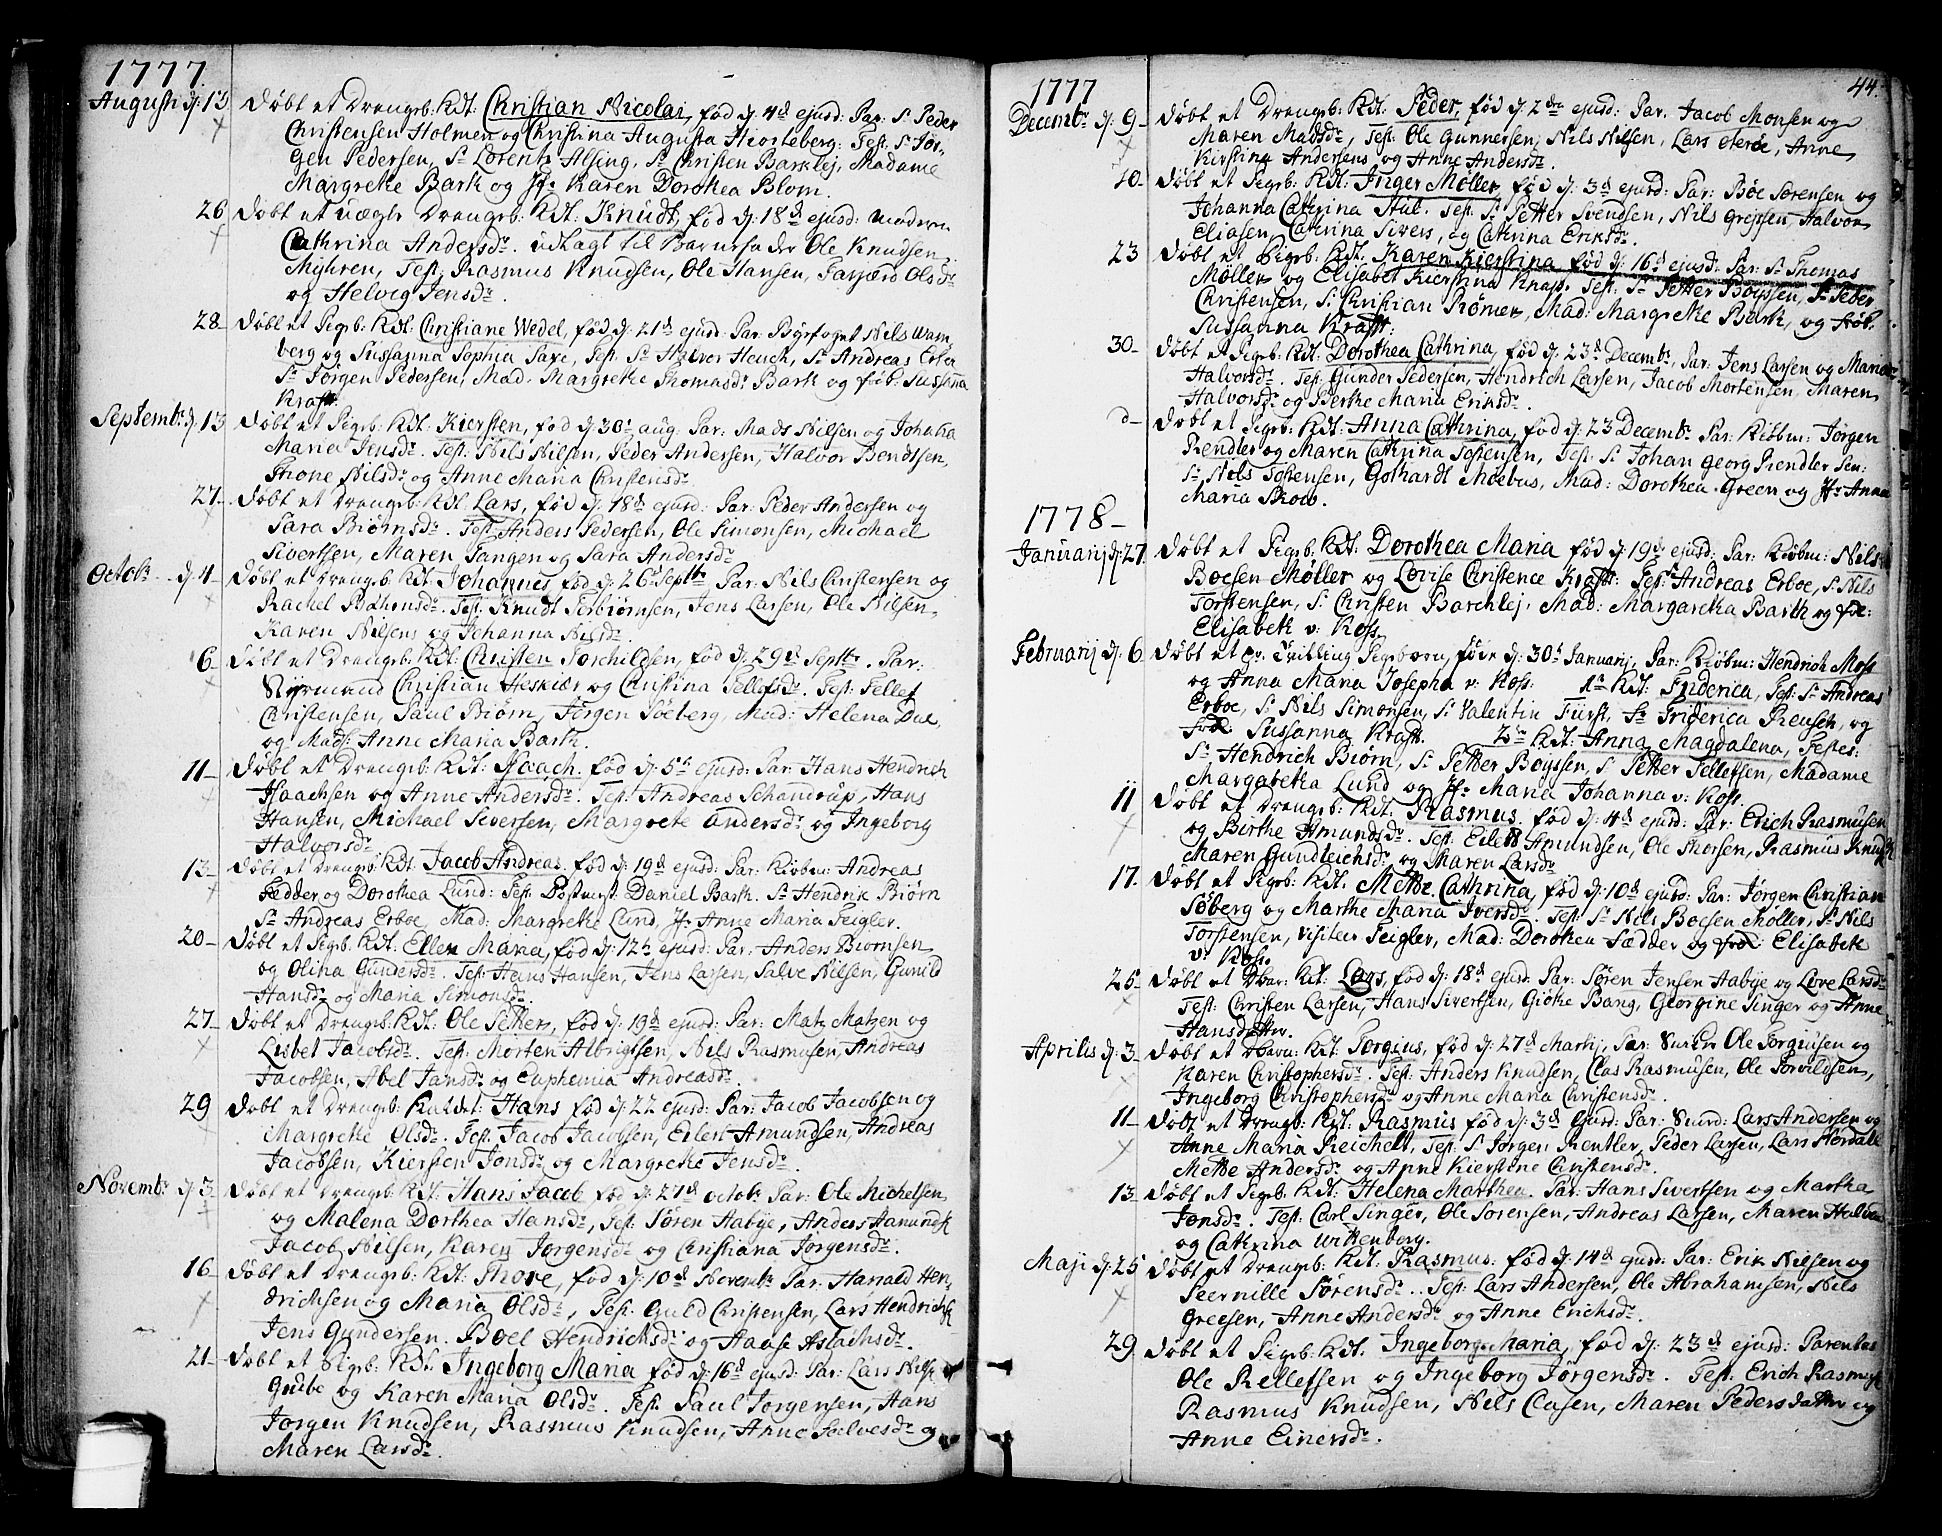 1777
Augusti d: 13 døbt et Drengeb: Kdt: Christian Nicolai, fød d: 4d ejusd: Par: Sr Peder
Christensen Holmen og Christina Augusta Hiorteberg: Test: Sr Jør-
gen Pedersen, Sr Lorentz Alsing, Sr Christen Barklej, Madame
Margrethe Barth og Jfr Karen Dorothea Blom.
26 døbt et uægte Drengeb: Kdt: Knudt, fød d: 18d ejusd: moderen
Cathrina Andersdr. udlagt til Barnefader Ole Knudsen
Myhren, Test: Rasmus Knudsen, Ole Hansen, Tarjærd Olsdr
og Helvig Jensdr.
28 døbt et Pigeb: Kdt: Christiane Wedel, fød d: 21d ejusd: Par: Byefoget Nils Wam-
berg og Sussanna Sophia Saxe, Test: Sr Halver Heuch, Sr Andreas Erboe
Sr Jørgen Pedersen, Mad. Margrethe Thomasdr Bark og frk: Sussanna
Kraft.
Septembr d: 13 døbt et Pigeb: Kdt: Kiersten, fød d: 30t aug: Par: Mads Nilsen og Johana
Maria Jensdr. Test: Nils Nilsen, Peder Andersen, Halvor Bendtsen,
Thone Nilsdr og Anne Maria Christensdr.
27 døbt et Drengeb: Kdt: Lars, fød d: 18d ejusd: Par: Peder Andersen og
Sara Biørnsdr. Test: Anders Pedersen, Ole Simonsen, Michael
Sivertsen, Maren Tangen og Sara Andersdr
Octobr d: 4 døbt et Drengeb: Kdt: Johannes fød d: 26 Septbr Par: Nils Christensen og
Rachel Bothensdr. Test: Knudt Terbiørnsen, Jens Larsen, Ole Nilsen,
Karen Nilsens og Johanna Nilsdr.
6 døbt et Drengeb: Kdt: Christen Torchildsen, fød d: 29d Septbr. Par:
Styrmand Christian Heskiær og Christina Tellefsdr. Test: Tellef
Christensen, Paul Biørn, Jørgen Søeberg, Mad: Helena Due
og Mads: Anne Maria Bark.
11 døbt et Drengeb: Kdt: Isaach. fød d: 5t ejusd: Par: Hans Hendrich
Isaachsen og Anne Andersdr. Test: Andreas Schandrup, Hans
Hansen, Michael Seversen, Margrete Andersdr og Ingeborg
Halvorsdr.
13 døbt et Drengeb: Kdt: Jacob Andreas, fød d: 19d ejusd: Par: Kiøbm: Andreas
Fædder og Dorothea Lund: Test: Postmest: Daniel Barth. Sr Hendrik Biørn
Sr Andreas Erboe, Mad: Margrethe Lund, Jfr Anne Maria Feigler.
20 døbt et Pigeb: Kdt: Ellen Maria, fød d: 12t ejusd: Par: Anders Biørnsen
og Olina Gundersdr. Test: Hans Hansen, Jens Larsen, Salve Nilsen, Gunild
Hansdr og Maria Simonsdr.
27 døbt et Drengeb: Kdt: Ole Petter, fød d: 19d ejusd: Par: Matz Matzen og
Lisbet Jacobsdr. Test: Morten Albrigtsen, Nils Rasmusen, Andreas
Jacobsen, Abel Jansdr og Euphemia Andreasdr.
29 døbt et Drengeb: Kaldet: Hans fød d: 22 ejusd: Par: Jacob Jacobsen og
Margrethe Olsdr. Test: Jacob Jacobsen, Eilert Amundsen, Andreas
Jacobsen, Kiersten Jonsdr og Margrethe Jensdr.
Novembr d: 3 døbt et Drengeb: Kdt: Hans Jacob fød d: 27d octobr Par: Ole Michelsen
og Malena Dorthea Hansdr, Test: Søren Aabye, Anders Aamundsen
Jacob Nilsen, Karen Jørgensdr og Christiana Jørgensdr.
16 døbt et Drengeb: Kdt: Thore, fød d: 10d Novembr Par: Harrald Hen-
drichsen og Maria Olsdr, Test: Guld Christensen, Lars Hendrichs
Jens Gundersen. Boel Hendrichsdr og Aaase Aslachsdr.
21 døbt et Pigeb: Kdt: Ingeborg Maria fød d: 16d ejusd: Par: Lars Nilsen
Grube og Karen Maria Olsdr. Test: Paul Jørgensen, Hans
Jørgen Knudsen, Rasmus Knudsen, Anne Salvesdr og
Maren Larsdr.
1777 44
Decembr d: 9 døbt et Drengeb: Kdt: Peder, fød d: 2den ejusd: Par: Jacob Monsen og
Maren Madsdr, Test: Ole Gunnersen, Nils Nilsen, Lars Aerøe, Anne
Kirstina Andersens og Anne Andersdr.
10 døbt et Pigeb: Kdt: Inger Møller, fød d: 3d ejusd: Par: Bøe Sørensen og
Johanna Cathrina Hul. Test: Sr Petter Svendsen, Nils Grejssen, Halvor
Eliasen, Cathrina Sivers, og Cathrina Eriksdr.
23 døbt et Pigeb: Kdt: Karen Kierstina fød d: 16d ejusd: Par: Sr Thomas
Møller og Elisabet Kierstina Knap. Test: Sr Petter Boyssen, Sr Peder
Christensen, Sr Christian Rømer, Mad: Margrethe Bark, og frk:
Sussanna Kraft:
30 døbt et Pigeb: Kdt: Dorothea Cathrina, fød d: 23d Decembr, Par: Jens Larsen og Maria
Halvorsdr. Test: Gunder Pedersen, Hendrich Larsen, Jacob Mortensen, Maren
Halvorsdr og Berthe Maria Eriksdr.
d- døbt et Pigeb: Kdt: Anna Cathrina, fød d: 23 Decembr Par: Kiøbm: Jørgen
Rendler og Maren Cathrina Tostensen, Test: Sr Johan Georg Rendler Sen:
Sr Nils Tostensen, Gothardt Moebus, Mad: Dorothea Green og Jfr Anna
Maria Skow.
1778
Januarij d: 27 døbt et Pigeb: Kdt: Dorothea Maria fød d: 19d ejusd: Par: Kiøbm: Nils
Boesen Møller og Lovise Christence Kraft: Test: Sr Andreas Erboe, Sr Nils
Torstensen, Sr Christen Barchlej, Mad: Margaretha Barth og frk:
Elisabeth v: Koss
Februarij d: 6 døbt et pr. Trilling Pigebørn, føde d: 30t Januarij, Par: Kiøbm: Hendrich Moss
og Anna Maria Josepha v: Koss: 1te Kdt: Friderica, Test: Sr Andreas
Erboe, Sr Nils Simonsen, Sr Valentin Fürst, Fr Friderica Reusch, og
frk Sussanna Kraft. 2de Kdt: Anna Magdalena, Testes:
Sr Hendrich Biørn, Sr Petter Boyssen, Sr Petter Tellefsen, Madame
Margaretha Lund og Jfr Maria Johanna v: Koss.
11 døbt et Drengeb: Kdt: Rasmus. fød d: 4d ejusd: Par: Erich Rasmusen
og Birthe Amundsdr. Test: Eilert Amundsen, Ole Thorsen, Rasmus Knuds
Maren Gundleichsdr og Maren Larsdr
17 døbt et Pigeb: Kdt. Mette Cathrina, fød d: 10d ejusd: Par: Jørgen Christian
Søberg og Marthe Maria Iversdr. Test: Sr Nils Boesen Møller, Sr Nils
Torstensen, Visiteur Feigler, Mad: Dorothea Fædder og frk: Elisabeth
v: Koss.
25 døbt et Dbar: Kdt: Lars, fød d: 18d ejusd: Par: Søren Jensen Aabye og Live Larsdr
Test: Christen Larsen, Hans Sivertsen, Giøke Bang, Georgine Singer og Anne
Hansdatter.
Aprilis d: 3 døbt et Dbarn: Kdt: Torgius, fød d: 27d Martij, Par: Snidk: Ole Torgiusen og
Karen Christophersdr. Test: Anders Knudsen, Clas Rasmusen, Ole Torvildsen,
Ingeborg Christophersdr og Anne Maria Christensdr.
11 døbt et Drengb: Kdt: Rasmus fød d: 3d ejusd: Par: Snid: Lars Andersen og
Anne Maria Reichelt, Test: Sr Jørgen Rentler, Peder Larsen, Lars Hordahl
Mette Andersdr og Anne Kierstine Christensdr.
13 døbt et Pigeb: Kdt: Helena Marthea. Par: Hans Sivertsen og Martha
Jonsdr. Test: Carl Singer, Ole Sorensen, Andreas Larsen, Maren Halvors
og Cathrina Wittenborg.
Maji d: 25 døbt et Drengeb: Kdt: Rasmus. fød d: 14d ejusd: Par: Erik Nielsen og
Peernille Sørensdr. Test: Lars Andersen, Ole Abrahamsen, Nils
Greesen, Anne Andersdr og Anne Erichsdr.
29 døbt et Pigeb: Kdt. Ingeborg Maria, fød d: 23d ejusd: Parentes
Ole Rellefsen og Ingeborg Jørgensdr. Test: Erich Rasmus
Rasmus Knudsen, Nils Clasen, Maren Pedersdatter og
Anne Einersdr.